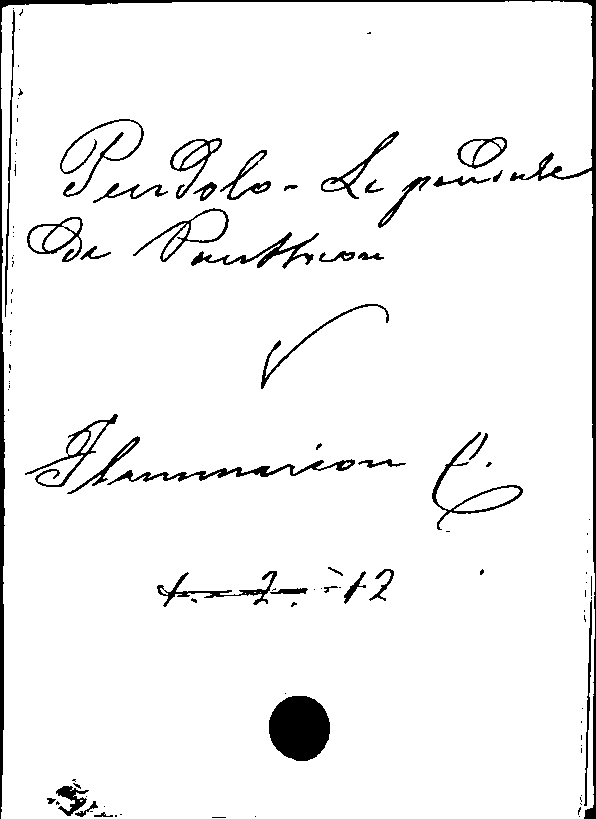 Pendolo - Le pendule
de Pantheon
Flammarion C.
12